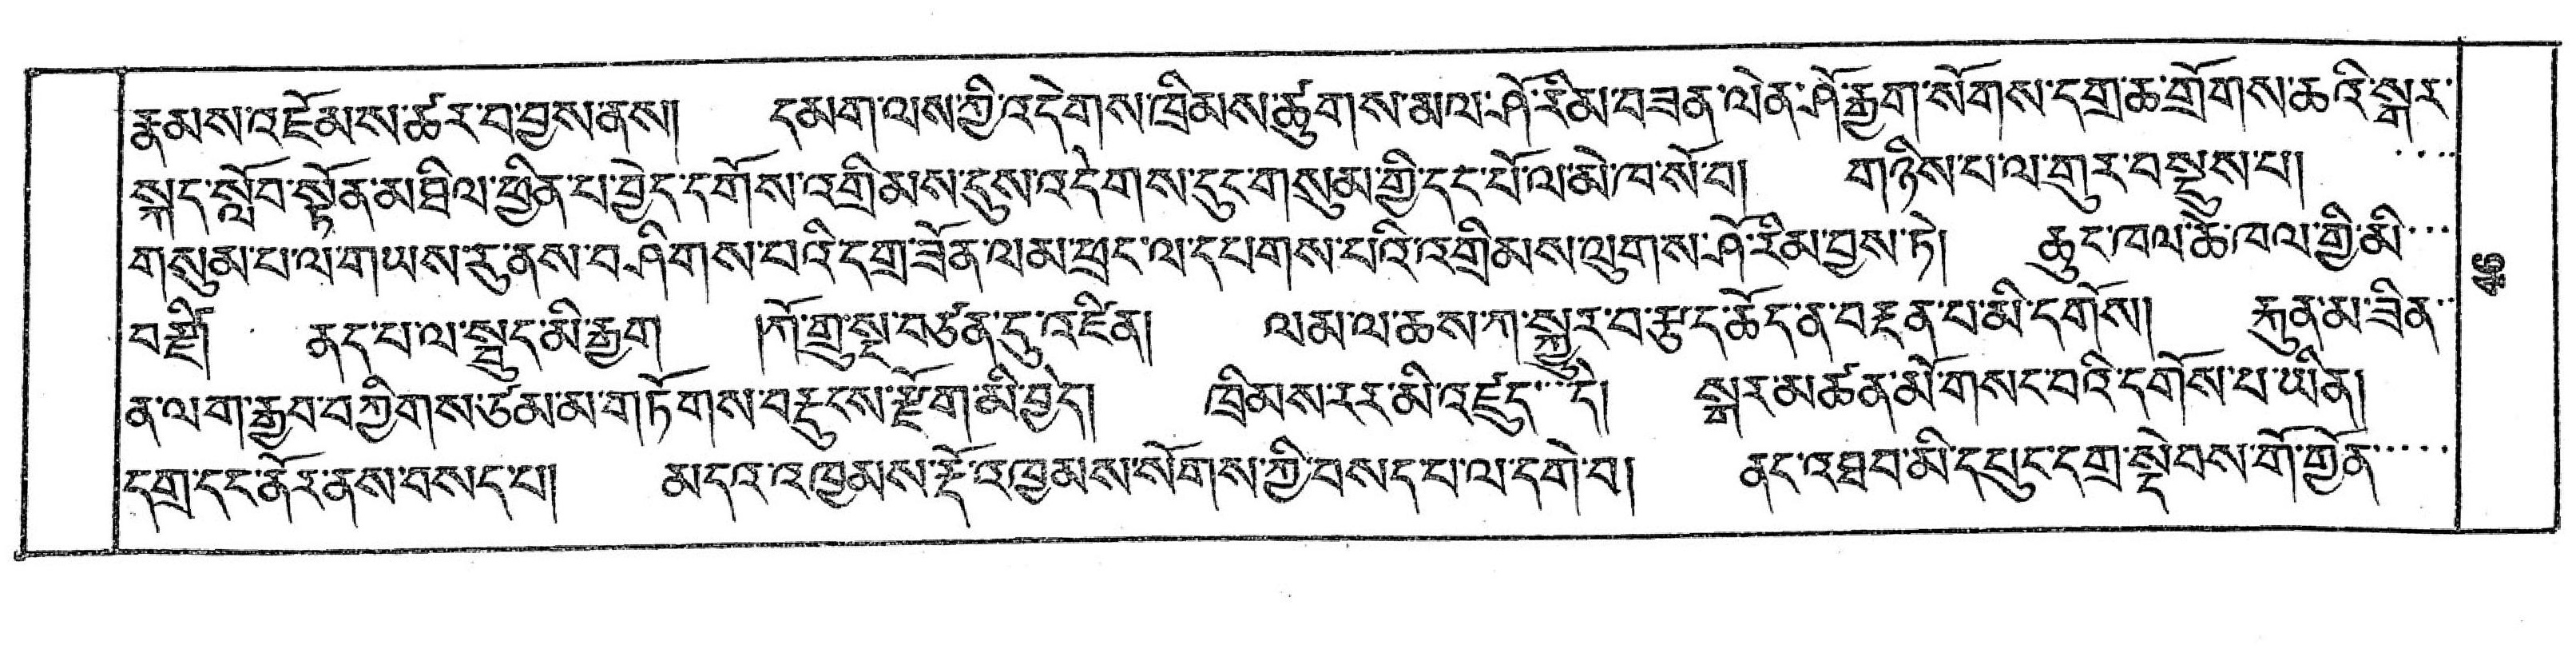 རྣམས་འཛོམས་ཚར་བ་བྱས་ནས།   དམག་ལས་ཀྱི་འདེགས་ཁྲིམས་ཚུགས་མལ་ཤོ་རིམ་བཟན་ལེན་ཤོ་རྒྱག་སོགས་དགྲ་ཆ་གྲོགས་ཆའི་སྒར་
སྐད་སློབ་སྟོན་མཐིལ་ཕྱིན་པ་བྱེད་དགོས་འགྲིམས་དུས་འདེགས་དུང་གསུམ་གྱི་དང་པོ་ལ་མེ་ཁ་སོ་བ།   གཉིས་པ་ལ་གུར་བསྡུས་པ། ....
གསུམ་པ་ལ་གཡས་རུ་ནས་བཤིགས་པའི་དགྲ་ཟོན་ལམ་ཕྲང་ལ་དཔགས་པའི་འགྲིམས་ལུགས་ཤོ་རིམ་བྱས་ཏེ།   ཆུང་ཁལ་ཆེ་ཁལ་གྱི་མི་...
བརྫི།   ནད་པ་ལ་སྤུད་མི་རྒྱག   །ཀོ་གྲུ་སྔ་བཙན་དུ་འཛིན།   ལམ་ལ་ཆས་ཀ་སྐྱུར་བ་རྩད་ཆོད་ན་བརྡན་པ་མི་དགོས།   རྐུན་མ་ཟིན་..
ན་ལག་རྒྱབ་བཀྱིགས་ཙམ་མ་གཏོགས་བརྡུངས་རྫོག་མི་བྱེད།   ཁྲིམས་རར་མི་འཛུད་...དེ།   སྒར་མཚན་མོ་གསང་བའི་དགོས་པ་ཡིན།
དགྲ་དང་ནོར་ནས་བསད་པ།   མདའ་འཁྱམས་རྡོ་འཁྱམས་སོགས་ཀྱི་བསད་པ་ལ་དགེ་བ།   ནང་འཐབ་མི་དཔུང་དགྲ་སྡེབས་གོ་གྱོན་.....